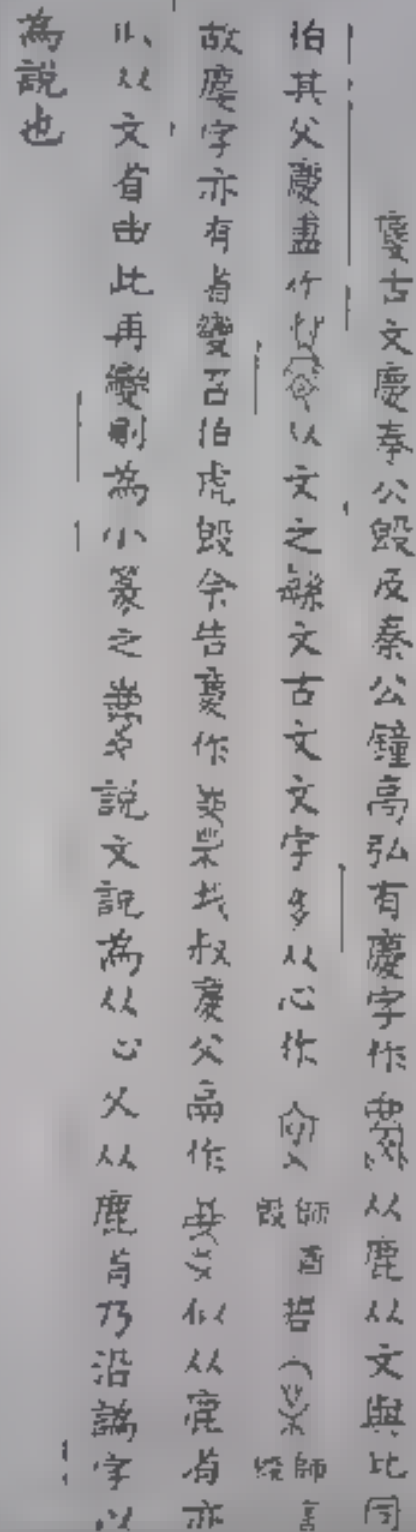 慶古文慶秦公毁及秦公鐘高弘有慶字作从鹿从文與此同
伯其父慶盨作从文之繇文古文文字多从心作師酉毁
故慶字亦有省變召伯虎毁余告慶作叔慶父鬲作似从鹿省亦
从文省由此再變則為小篆之說文說為从心夂从鹿省乃沿譌字以
為說也